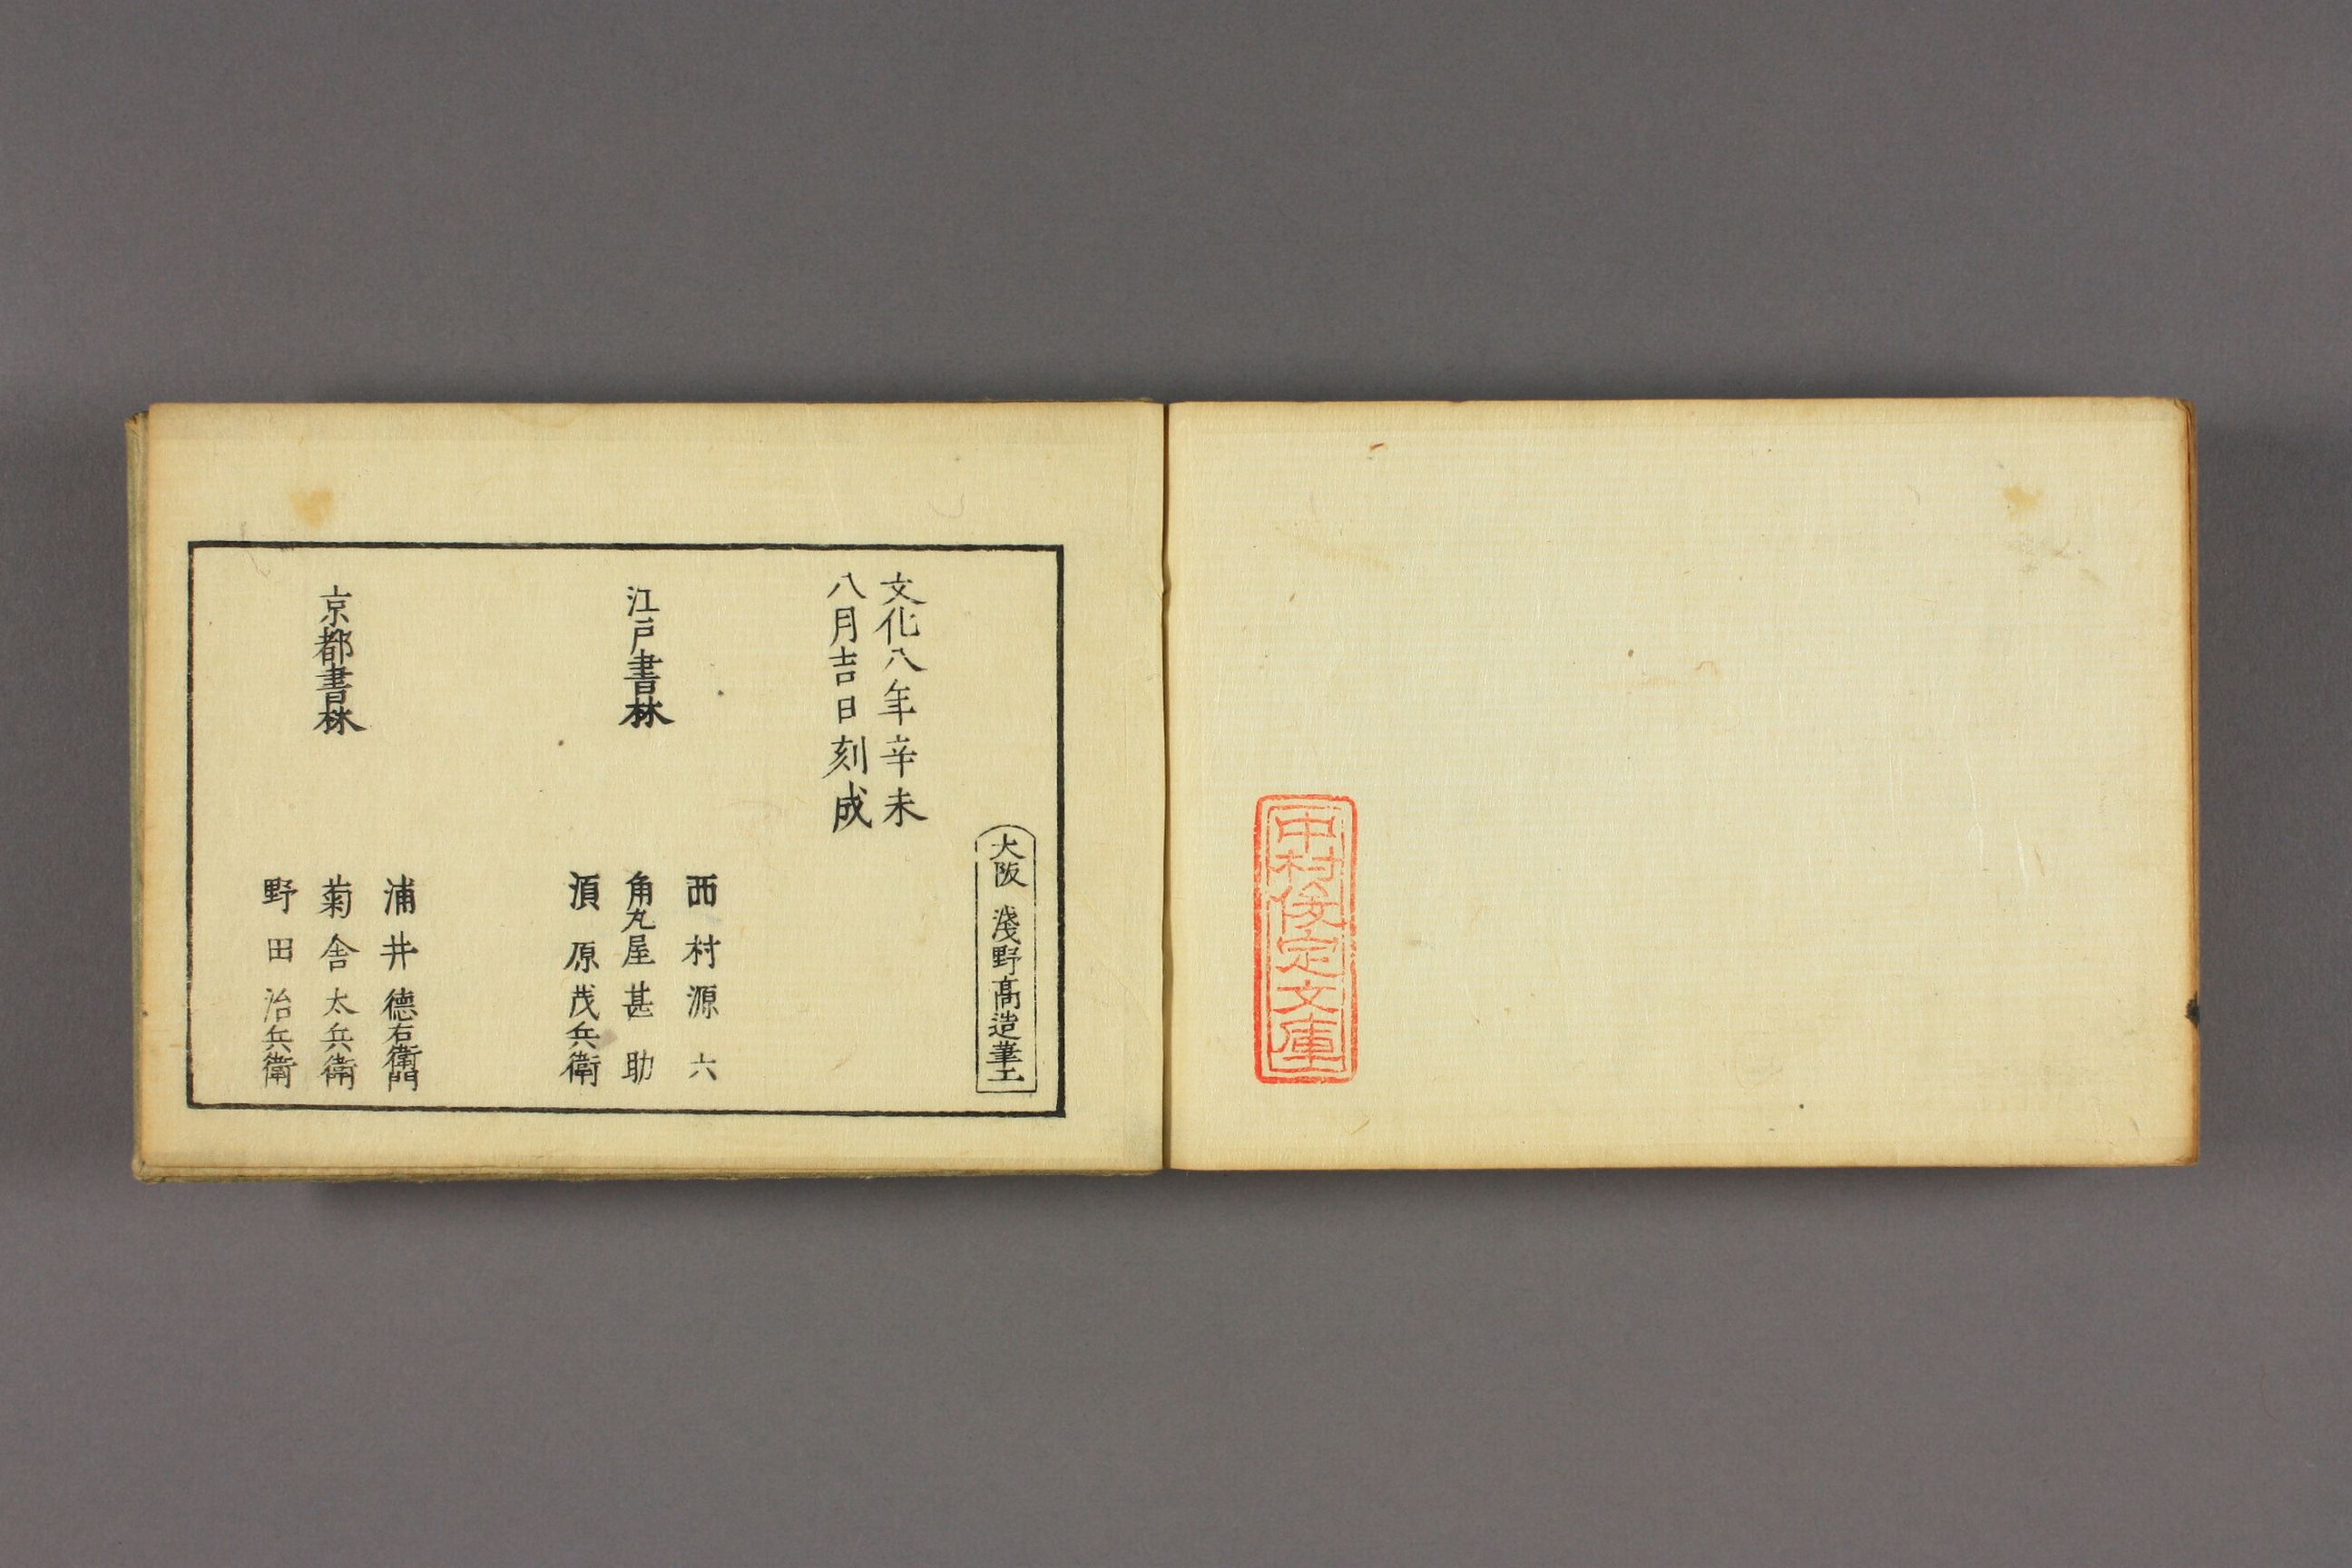 中村俊定文庫
大阪 淺野髙造筆工
文化八年辛未
八月吉日刻成
江戸書林
西村源六
角丸屋甚助
須原茂兵衛
京都書林
浦井德右衛門
菊舎太兵衛
野田治兵衛